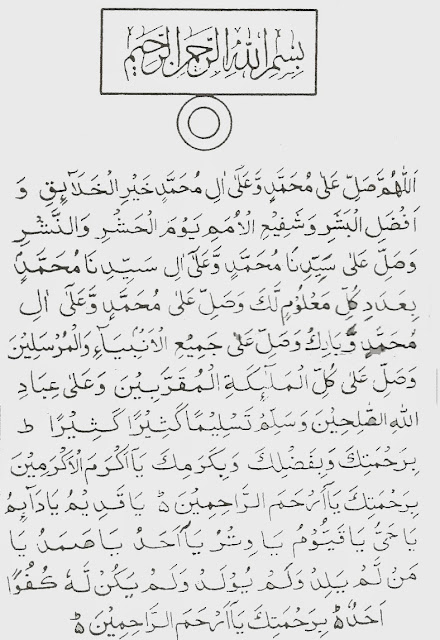 بِسْمِ اللهِ الرَّحْمٰنِ الرَّحِيْمِ
اَللّٰهُمَّ صَلِّ عَلٰى مُحَمَّدٍ وَّعَلٰٓى اٰلِ مُحَمَّدٍ خَيْرِ الْخَلَآئِقِ وَ
اَفْضَلِ الْبَشَرِ وَشَفِيْعِ الْاُمَمِ يَوْمَ الْحَشْرِ وَالنَّشْرِ
وَصَلِّ عَلٰى سَيِّدِنَا مُحَمَّدٍ وَّعَلٰٓى اٰلِ سَيِّدِنَا مُحَمَّدٍ
بِعَدَدِ كُلِّ مَعْلُوْمٍ لَّكَ وَصَلِّ عَلٰى مُحَمَّدٍ وَّعَلٰٓى اٰلِ
مُحَمَّدٍ وَّبَارِكْ وَصَلِّ عَلٰى جَمِيْعِ الْاَنْبِيَآءِ وَالْمُرْسَلِيْنَ
وَصَلِّ عَلٰى كُلِّ الْمَلٰٓئِكَةِ الْمُقَرَّبِيْنَ وَعَلٰى عِبَادِ
اللهِ الصّٰلِحِيْنَ وَسَلِّمْ تَسْلِيْمًا كَثِيْرًا كَثِيْرًا ط
بِرَحْمَتِكَ وَبِفَضْلِكَ وَبِكَرَمِكَ يَآ اَكْرَمَ الْاَكْرَمِيْنَ
بِرَحْمَتِكَ يَآ اَرْحَمَ الرَّاحِمِيْنَ ط يَا قَدِيْمُ يَا دَآئِمُ
يَا حَيُّ يَا قَيُّوْمُ يَا وِتْرُ يَآ اَحَدُ يَا صَمَدُ يَا
مَنْ لَّمْ يَلِدْ وَلَمْ يُوْلَدْ وَلَمْ يَكُنْ لَّهٗ كُفُوًا
اَحَدٌ ط بِرَحْمَتِكَ يَآ اَرْحَمَ الرَّاحِمِيْنَ ط